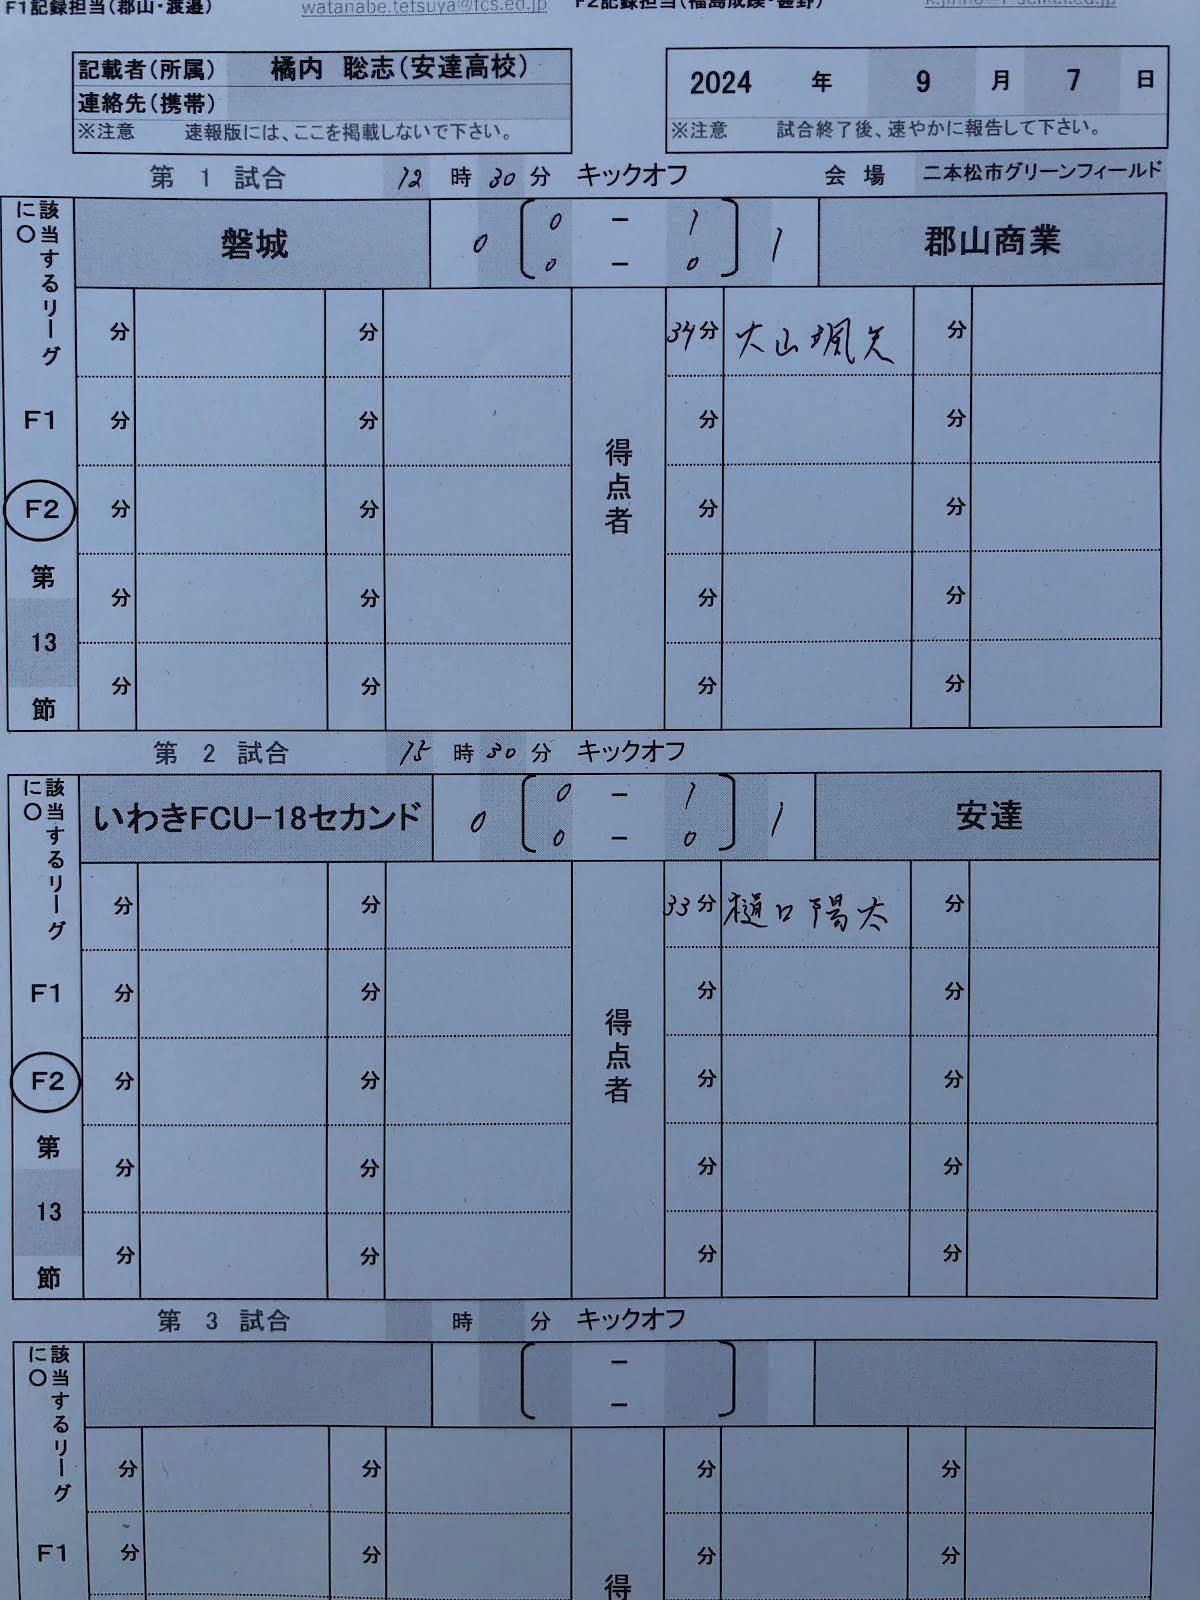 F1記録担当(郡山・渡邉) watanabe.tetsuya@fcs.ed.jp
記載者(所属) 橘内 聡志(安達高校)
連絡先(携帯)
※注意 速報版には、ここを掲載しないで下さい。
2024 年 9 月 7 日
※注意 試合終了後、速やかに報告して下さい。
第 1 試合 12 時 30 分 キックオフ 会場 二本松市グリーンフィールド
該当するリーグに〇
F1
F2
第
13
節
磐城 0 0 - 1 1 郡山商業
0 - 0
分 分 得点者 34分 大山颯矢 分
分 分 分 分
分 分 分 分
分 分 分 分
分 分 分 分
第 2 試合 15 時 30 分 キックオフ
該当するリーグに〇
F1
F2
第
13
節
いわきFCU-18セカンド 0 0 - 1 1 安達
0 - 0
分 分 得点者 33分 樋口陽太 分
分 分 分 分
分 分 分 分
分 分 分 分
分 分 分 分
第 3 試合 時 分 キックオフ
該当するリーグに〇
F1
-
-
分 分 得 分 分
分 分 分 分